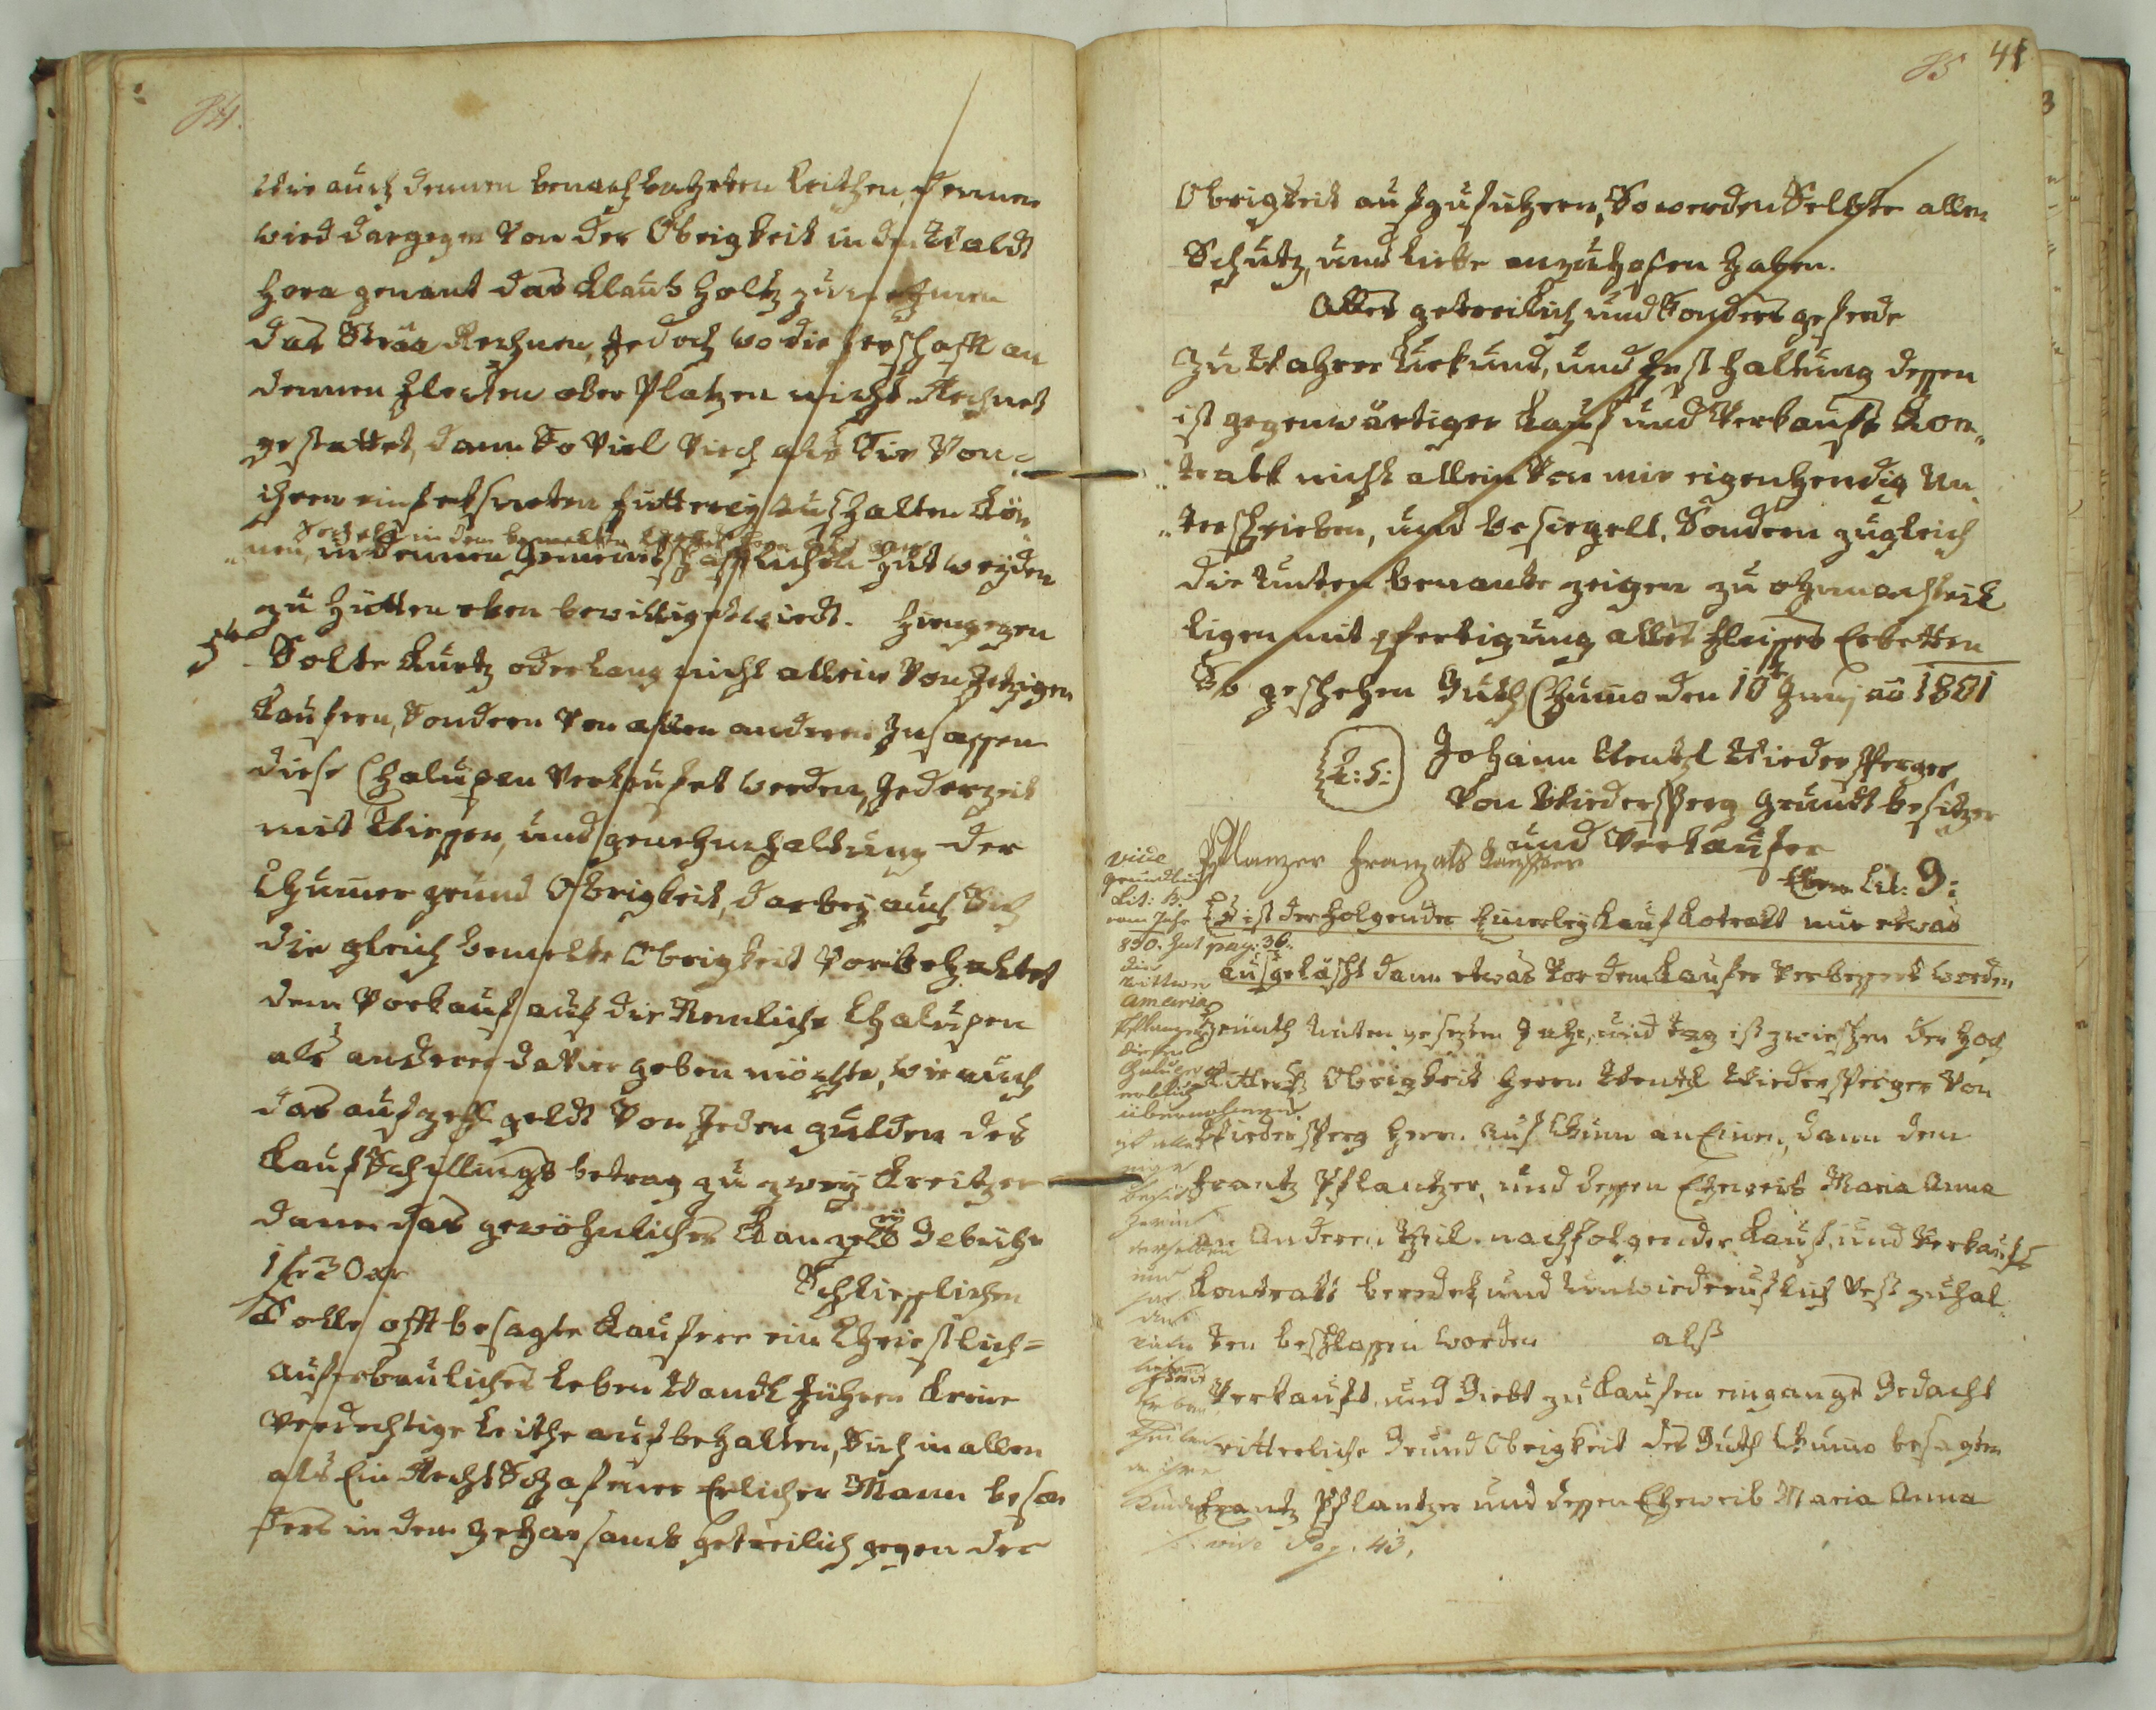 84.
Wie auch dennen benachbahrten Leithen, dennen
wird dargegen von der Obrigkeit in den Waldt
Hora genant das Klaub Holtz zu nehmen
das Sträa Rechnen, Jedoch wo die Herschaft an
dennen Flecken ober Platzen nicht Rechnet
gestattet, dann So viel Viech als Sie von
ihren einfexsneten Futterey aushalten kön„
„nen, in dennen Gemeintschäfftlichen Hutweyden
zu Hütten eben bewilliget wirdt. Hiengegen
5to Solte Kurtz oder Lang nicht allein von Jetzigen
Kaufern, Sondern von allen anderen Insassen
diese Chalupen verkaufet werden, Jederzeit
mit Wiessen, und genehmhaltung der
Chumer grund Obrigkeit, darbey auch Sich
die gleich bemelte Obrigkeit vorbehaltet
dem Vorkauf auf die Nemliche Chalupen
als anderer darvor geben möchte, wie auch
das aufzehl geldt von Jeden gulden des
Kaufschillings betrag zu zwey Kreitzer
dann das gewöhnliches Kanzeley Gebühr
1 fr 30 xr Schliesslichen
Solle offt besagte Kaufere ein Christlich=
auferbauliches Leben Wandl führen keine
verdechtige Leithe aufbehalten, Sich in allen
als Ein Rechtschafener Ehrlicher Mann beson
ders in dem gehorsamb getreilich gegen der
85 41
Obrigkeit aufzuführen, So werden Selbte allen
Schutz, und Liebe anzuhofen haben.
Alles getreilich und Sonders geferde
Zu Wahrer Urkund, und Festhaltung dessen
ist gegenwärtiger Kauf und Verkaufs Kon„
„trakt nicht allein von mir eigenhendig Un„
„terschrieben, und besiegelt, Sondern zugleich
die Unten benante zeigen zu ohnnachteil
ligen mit Fertigung alles Fleisses Erbetten
So geschehen Guth Chumo den 10t Junij ao 1801
L: S: Johann Wentzl Wiedersperger
von Wiedersperg Grundt besitzer
und Verkaufer
Pflanzer Franz als Kaufher
Eben Lit: D:
Es ist der Folgender Emerley Kauf Kotrakt nur etwas
ausgelöscht dann etwas vor dem Kaufer verbessert worden
vide
grundbuch
Lit: B.
vom Jahr
830. Fut pag: 36.
die
Wittwe
Amaria
Pflanzer
diese
Chalupe
erblich
übernohmen.
Heunth Unten gesezten Jahr, und tag ist zwischen der Hoch
Ritterl: Obrigkeit Herrn Wentzl Wiedersperger von
Wiedersperg Herrn auf Chum an Einen, dann dem
Frantz Pflantzer, und dessen Eheweib Maria Anna
an Anderen Theil nachfolgender Kauf, und Verkaufs
Kontrakt beredet, und Unwiederruflich vest zuhal„
ten beschlossen worden alß
Verkauft, und Giebt zu kaufen eingangs Gedacht
ritterliche Grund Obrigkeit des Guth Chumo besagten
Frantz Pflantzer und dessen Eheweib Maria Anna
vide Pag. 43.